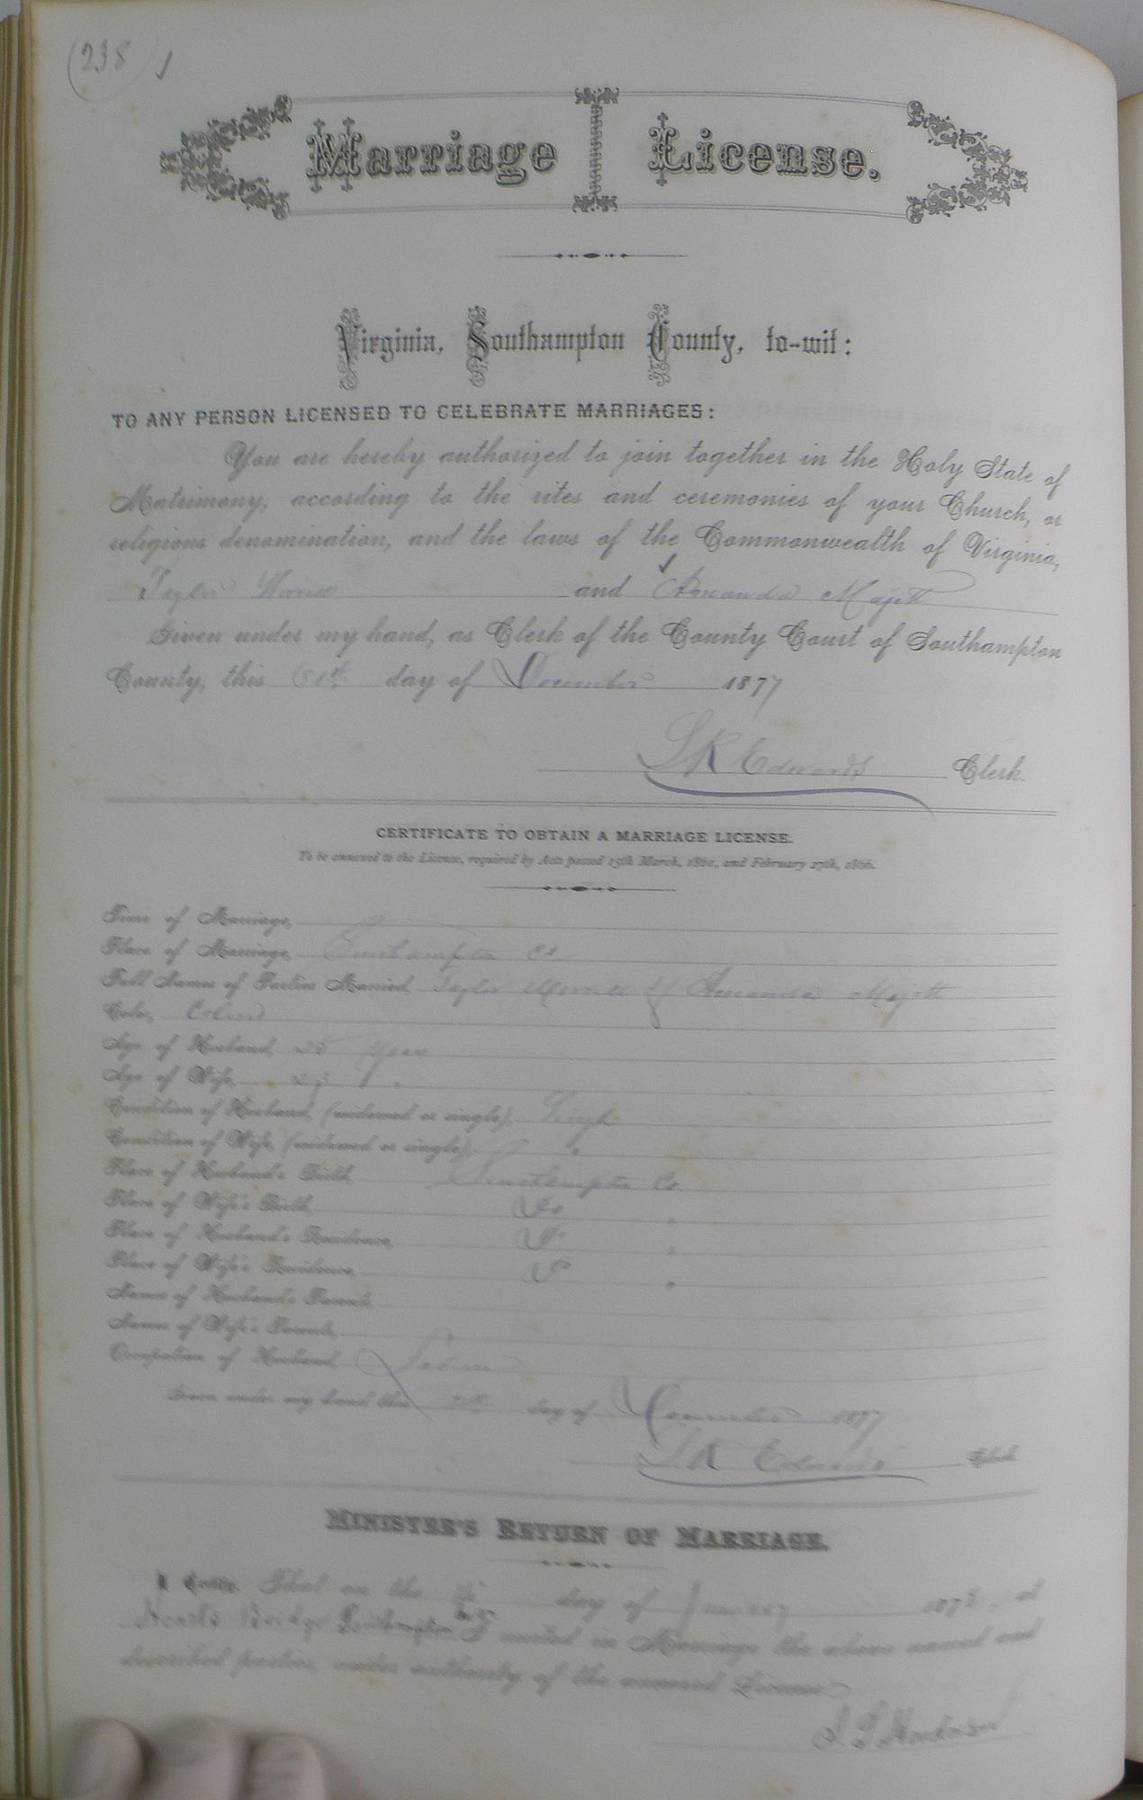 (238)
Marriage License.
Virginia, Southampton County, to-wit:
TO ANY PERSON LICENSED TO CELEBRATE MARRIAGES:
You are hereby authorized to join together in the Holy State of
Matrimony, according to the rites and ceremonies of your Church, or
religious denomination, and the laws of the Commonwealth of Virginia,
Taylor and Amanda Majett
Given under my hand, as Clerk of the County Court of Southampton
County, this day of December 1877
L R Edwards Clerk.
CERTIFICATE TO OBTAIN A MARRIAGE LICENSE.
To be annexed to the License, required by Acts passed 15th March, 1861, and February 27th, 1866.
Time of Marriage,
Place of Marriage, Southampton Co
Full Names of Parties Married, Taylor & Amanda Majett
Color, Colored
Age of Husband, 25 years
Age of Wife, 23 "
Condition of Husband, (widowed or single), Single
Condition of Wife, (widowed or single), "
Place of Husband's Birth, Southampton Co
Place of Wife's Birth, Do "
Place of Husband's Residence, Do "
Place of Wife's Residence, Do "
Names of Husband's Parents,
Names of Wife's Parents,
Occupation of Husband, Laborer
Given under my hand this day of December 1877
L R Edwards Clerk.
MINISTER'S RETURN OF MARRIAGE.
I Certify, That on the day of January 1878, at
Bridge Southampton Co Va I united in Marriage the above named and
described parties, under authority of the annexed License.